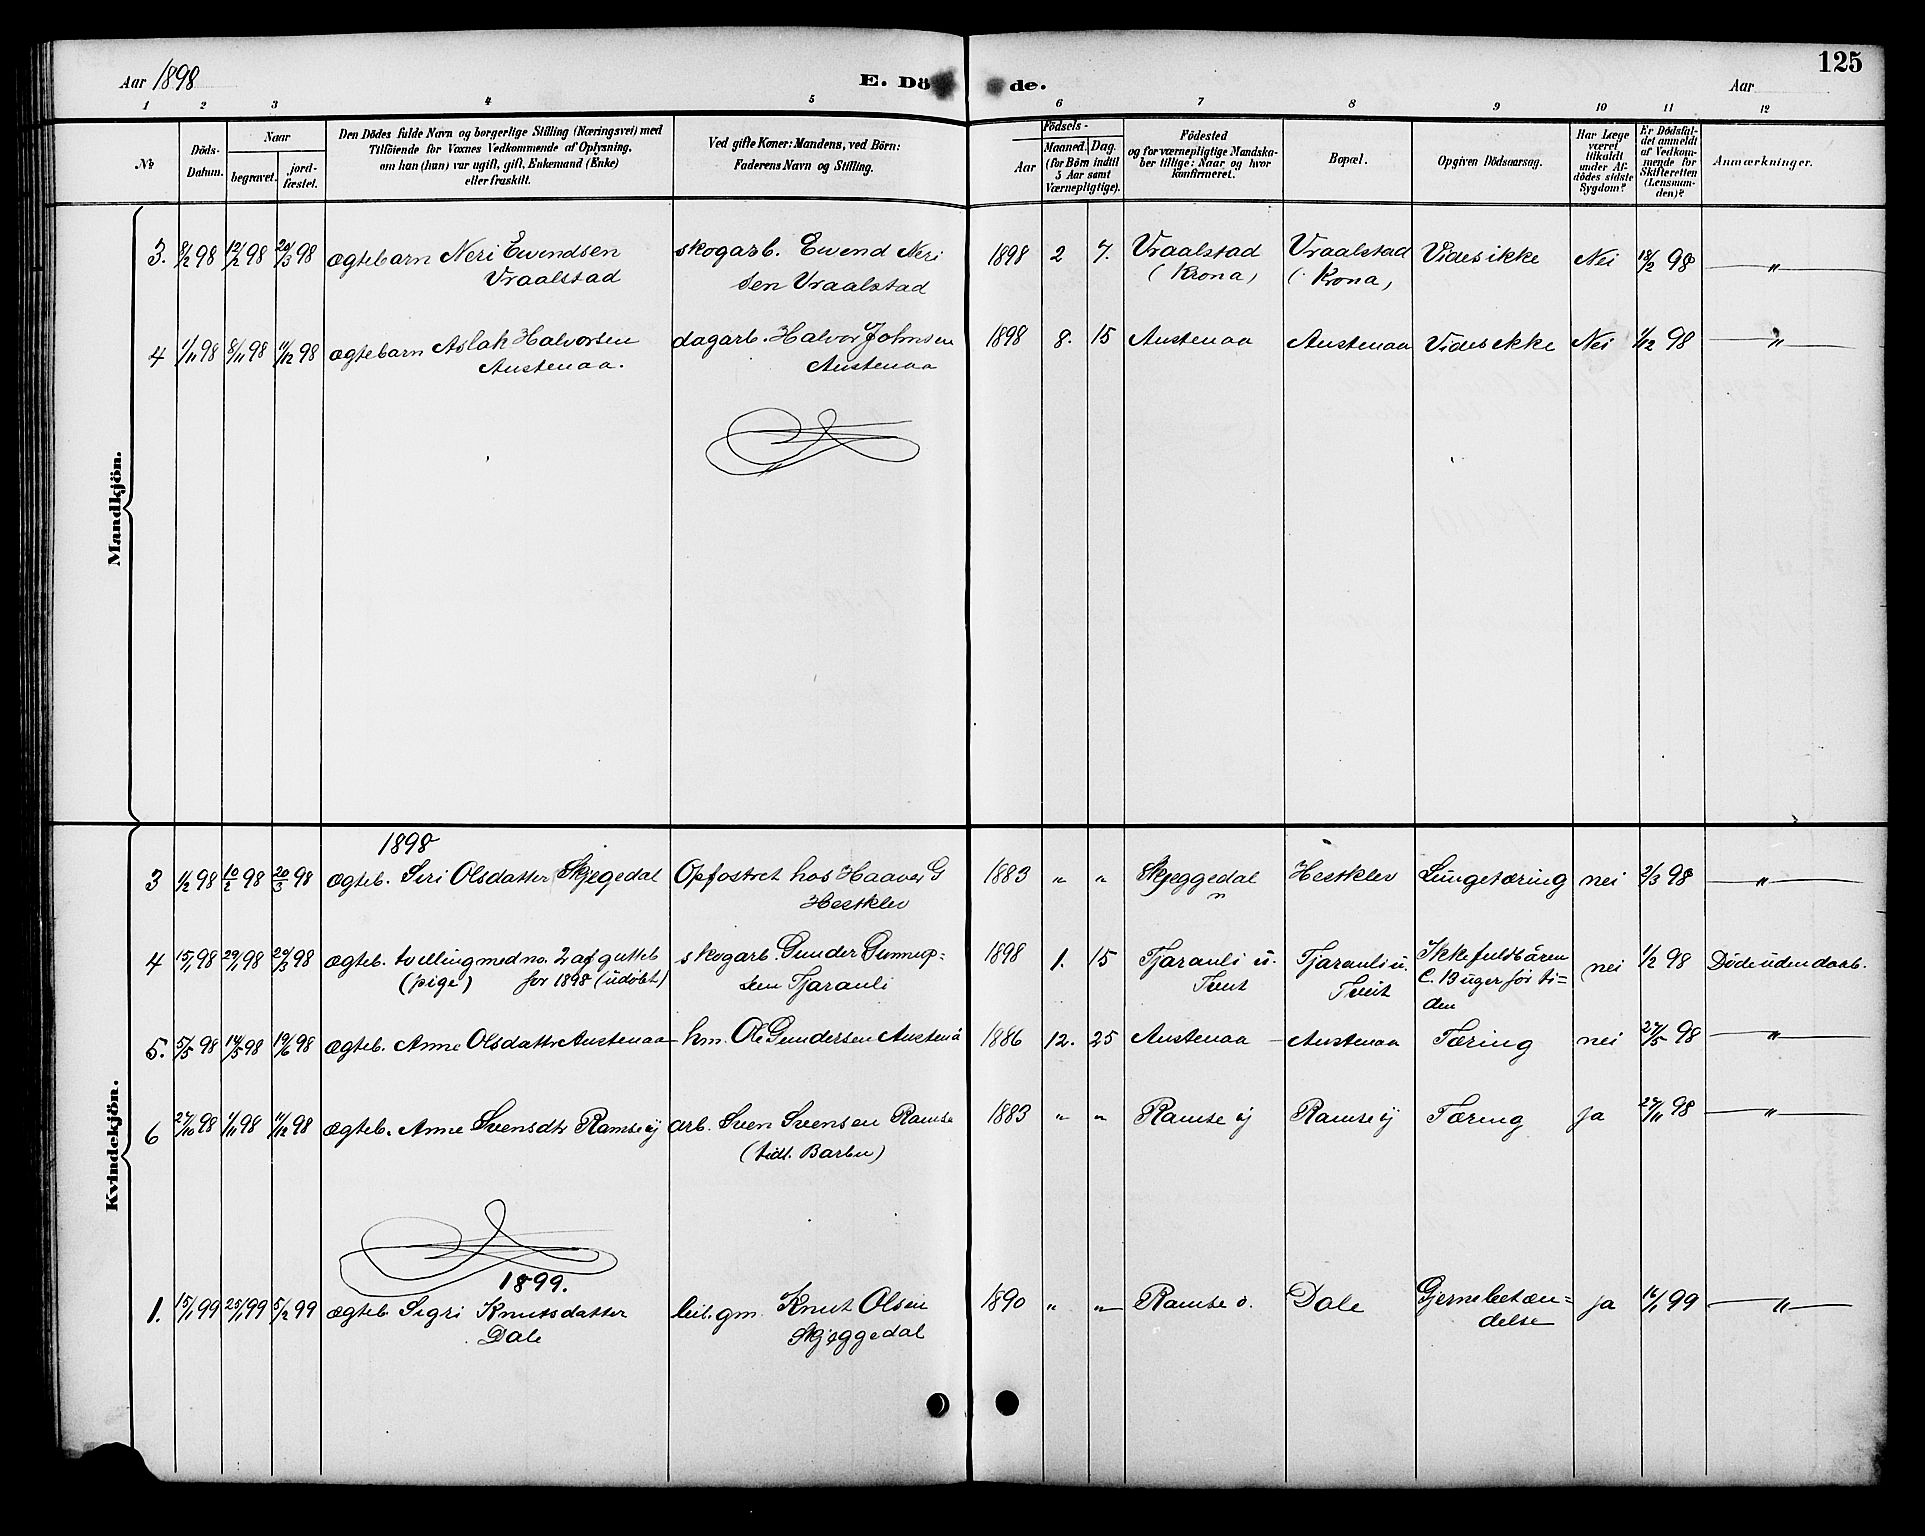 Aar 1898
E. Dö de.
Aar
125
1 2 3 4 5 6 7 8 9 10 11 12
No
Döds-
Datum.
Naar
begravet.
jord-
fæstet.
Den Dödes fulde Navn og borgerlige Stilling (Næringsvei) med
Tilföiende for Voxnes Vedkommende af Oplysning,
om han (hun) var ugift, gift, Enkemand (Enke)
eller fraskilt.
Ved gifte Koner: Mandens, ved Börn:
Faderens Navn og Stilling.
Födsels-
Aar
Maaned. Dag.
(for Börn indtil
5 Aar samt
Værnepligtige).
Födested
og for værnepligtige Mandska-
ber tillige: Naar og hvor
konfirmeret.
Bopæl.
Opgiven Dödsaarsag.
Har Læge
været
tilkaldt
under Af-
dödes sidste
Sygdom?
Er Dödsfal-
det anmeldt
af Vedkom-
mende for
Skifteretten
(Lensman-
den)?
Anmærkninger.
Mandkjön.
3. 8/2 98 12/2 98 20/3 98 ægtebarn Neri Evendsen skogarb. Evend Neri 1898 2 7. Vraalstad Vraalstad Vides ikke Nei 18/2 98 "
Vraalstad sen Vraalstad (Krona) (Krona)
4 1/11 98 8/11 98 11/12 98 ægtebarn Aslak Halvorsen dagarb. Halvor Johnsen 1898 8. 15 Austenaa Austenaa Vides ikke Nei 1/12 98 "
Austenaa. Austenaa
Kvindekjön.
1898
3 1/2 98 10/2 98 20/3 98 ægteb. Siri Olsdatter Skjegedal Opfostret hos Haaver G 1883 " " Skjeggedal Hestklev Lungetæring nei 2/3 98 "
Hestklev n
4 15/1 98 29/1 98 20/3 98 ægteb. tvilling med no. 2 af gutteb skogarb. Gunder Gunnup= 1898 1. 15 Tjarauli u. Tjarauli u. Ikke fuldbåren nei 1/2 98 Døde uden daab.
(pige) for 1898 (udøbt) sen Tjarauli Tveit Tveit C. 13 uger før ti=
den
5. 5/5 98 14/5 98 19/6 98 ægteb. Anne Olsdattr Austenaa hm. Ole Gundersen Austenå 1886 12. 25 Austenaa Austenaa Tæring nei 27/5 98 "
6 27/10 98 1/11 98 11/12 98 ægteb. Anne Svensdtr Ramse ij arb. Sven Svensen Ramse 1883 " " Ramse ij Ramse ij Tæring ja 27/11 98 "
(tidl. Barbu)
1899.
1. 15/1 99 25/1 99 5/2 99 ægteb Sigri Knutsdatter leil. gm. Knut Olsen 1890 " " Ramse ö. Dale Gjernebetæn= ja 16/1 99 "
Dale Skjeggedal delse